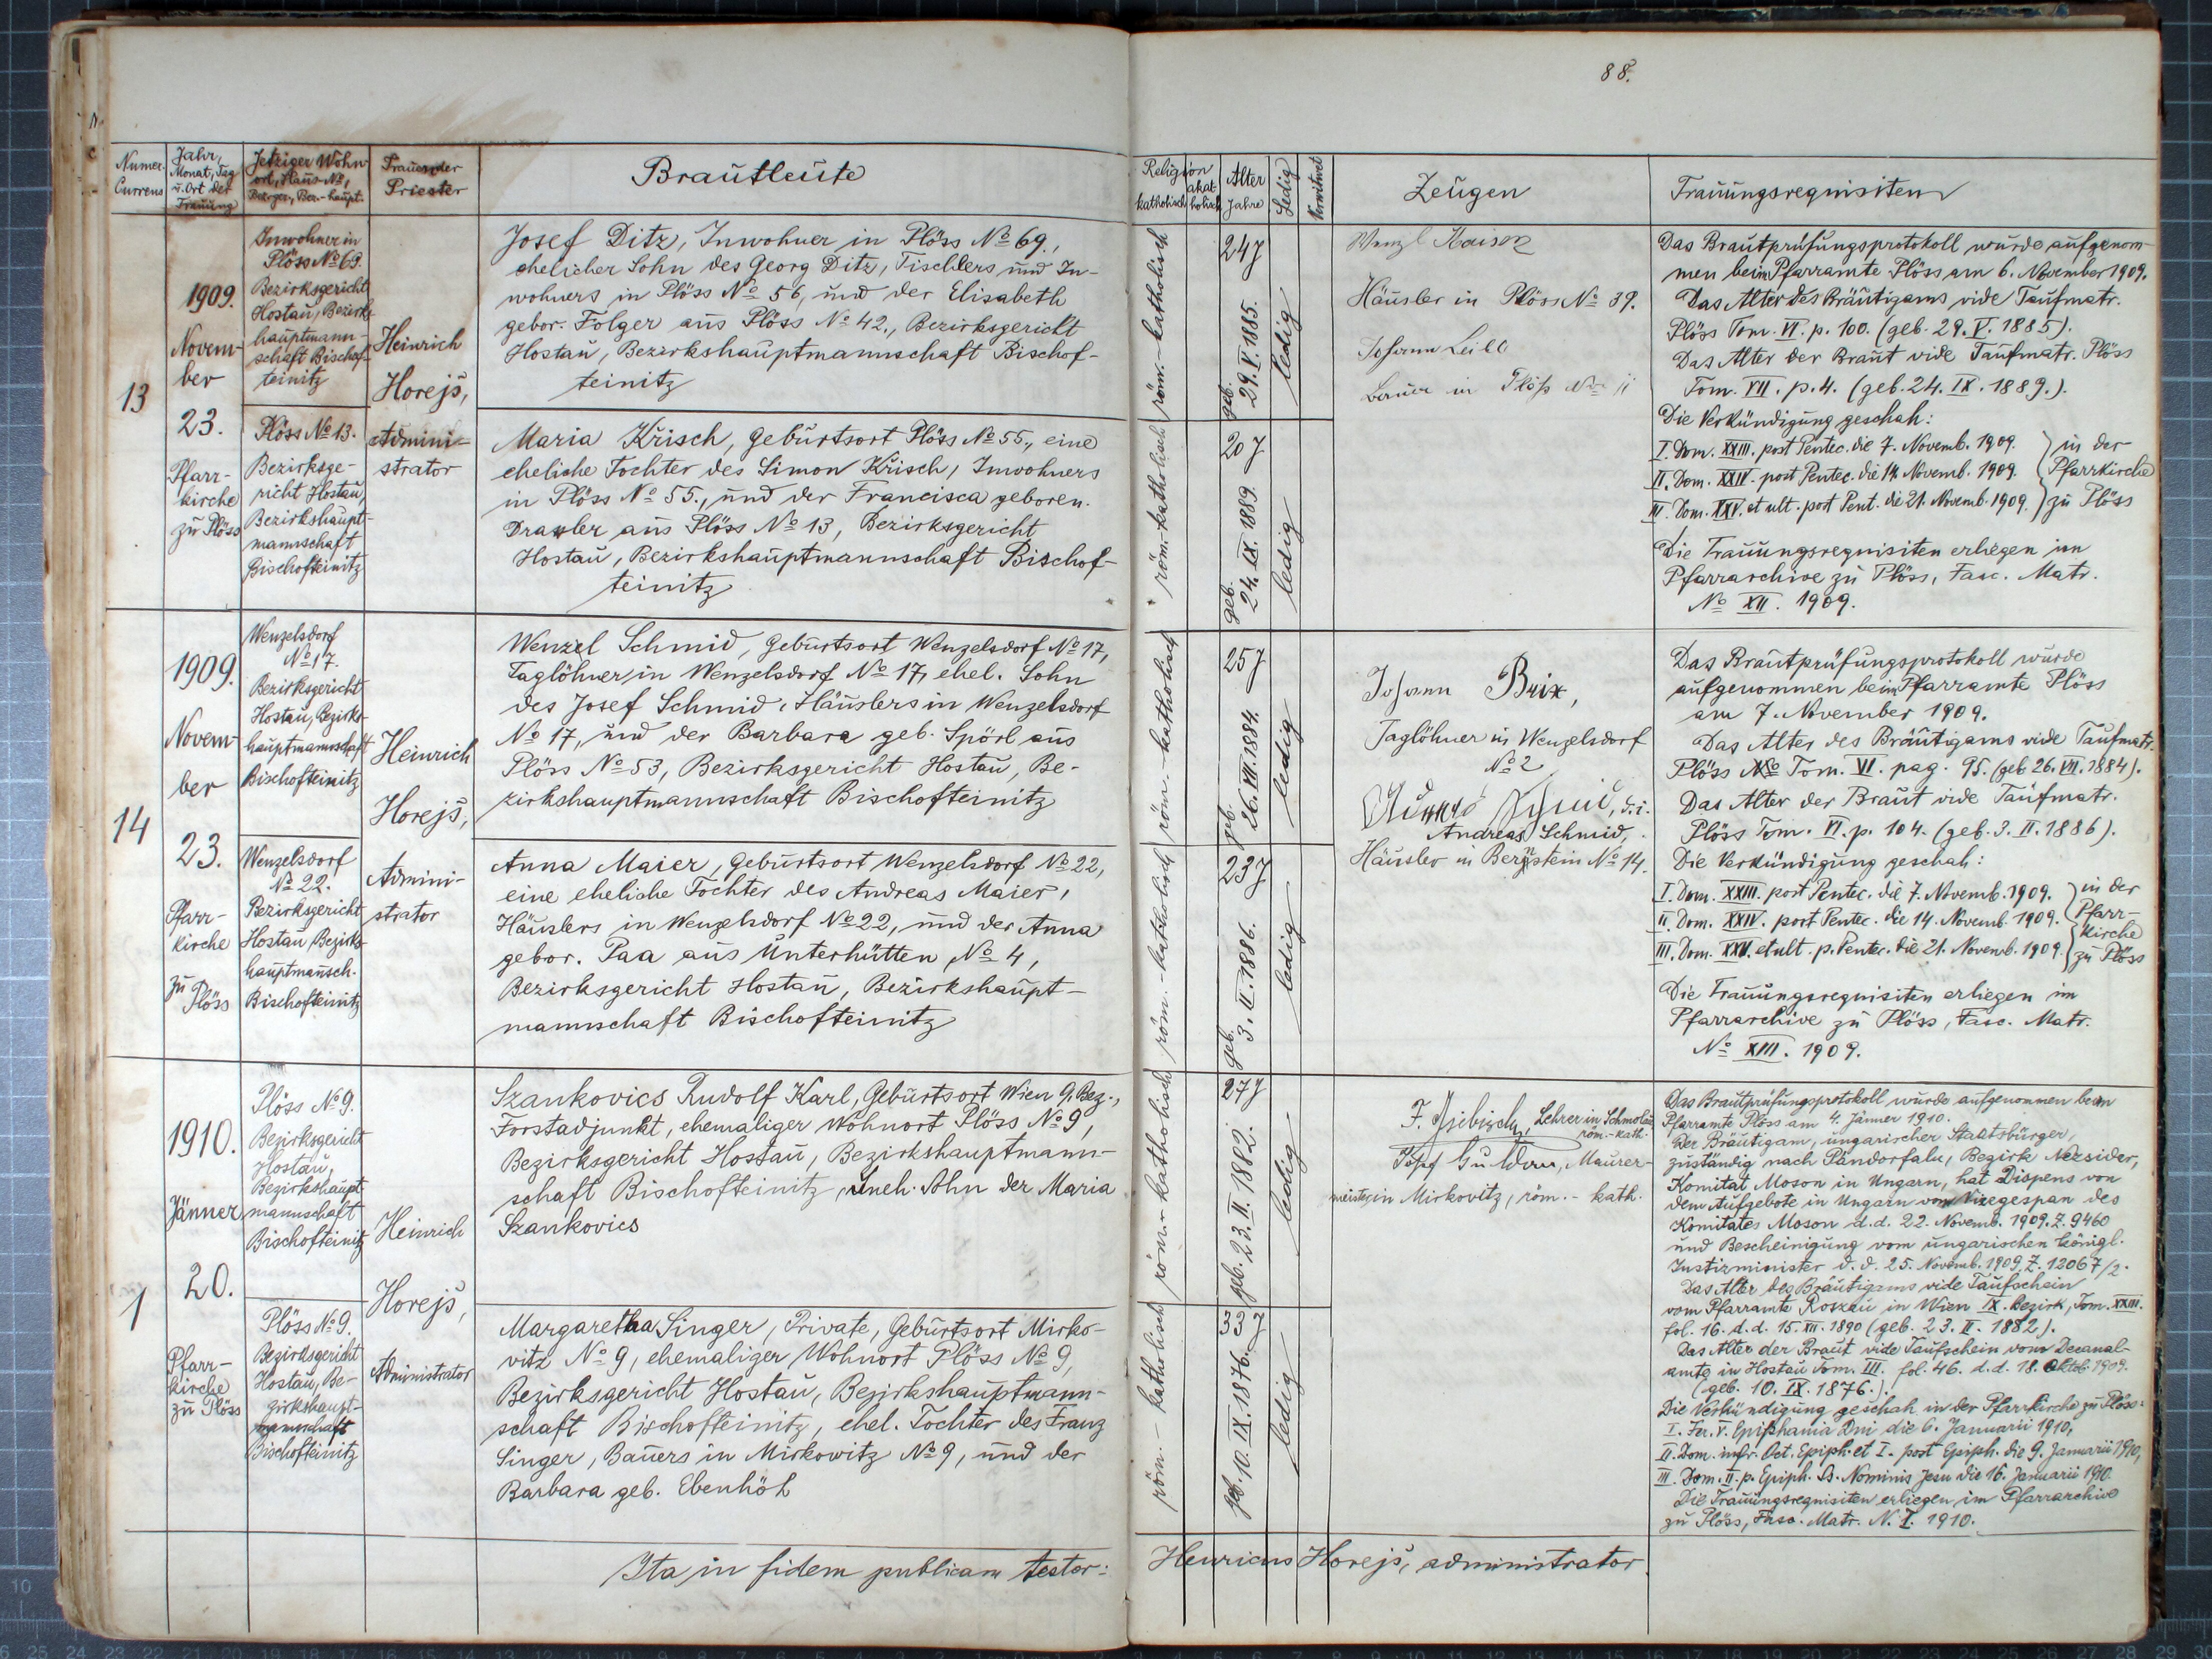 88.
Numer. Currens
Jahr, Monat, Tag u. Ort der Trauung
Jetziger Wohnort, Haus-No,
Trauender Priester
Brautleute
Religion
katholisch
akatholisch
Alter
Jahre
Ledig
Verwitwet
Zeugen
Trauungsrequisiten
13
1909.
Novem-
ber
23.
Pfarr-
kirche
zu Plöss
Inwohner in
Plöss No 69.
Bezirksgericht
Hostau, Bezirks-
hauptmann-
schaft Bischof-
teinitz
Plöss No 13.
Bezirksge-
richt Hostau,
Bezirkshaupt-
mannschaft
Bischofteinitz
Heinrich
Horejš,
Admini-
strator
Josef Ditz, Inwohner in Plöss No 69.,
ehelicher Sohn des Georg Ditz, Tischlers und In-
wohners in Plöss No 56, und der Elisabeth
gebor. Folger aus Plöss No 42., Bezirksgericht
Hostau, Bezirkshauptmannschaft Bischof-
teinitz
Maria Krisch, Geburtsort Plöss No 55., eine
eheliche Tochter des Simon Krisch, Inwohners
in Plöss No 55., und der Francisca geboren.
Draxler aus Plöss No 13, Bezirksgericht
Hostau, Bezirkshauptmannschaft Bischof-
teinitz
röm.-katholisch
24 J
geb. 29. V. 1885.
ledig
röm.-katholisch
20 J
geb. 24. IX. 1889.
ledig
Wenzl
Häusler in Plöss No 39.
Johann
in Plöß No 11
Das Brautprüfungsprotokoll wurde aufgenom-
men beim Pfarramte Plöss am 6. November 1909.
Das Alter des Bräutigams vide Taufmatr.
Plöss Tom. VI. p. 100. (geb. 29. V. 1885).
Das Alter der Braut vide Taufmatr. Plöss
Tom. VII. p. 4. (geb. 24. IX. 1889.).
Die Verkündigung geschah:
I. Dom. XXIII. post Pentec. die 7. Novemb. 1909. in der
II. Dom. XXIV. post Pentec. die 14. Novemb. 1909. Pfarrkirche
III. Dom. XXV. et ult. post Pent. die 21. Novemb. 1909. zu Plöss
Die Trauungsrequisiten erliegen im
Pfarrarchive zu Plöss, Fasc. Matr.
No XII. 1909.
14
1909.
Novem-
ber
23.
Pfarr-
kirche
zu
Plöss
Wenzelsdorf
No 17.
Bezirksgericht
Hostau, Bezirks-
hauptmannschaft
Bischofteinitz
Wenzelsdorf
No 22.
Bezirksgericht
Hostau Bezirks-
hauptmansch.
Bischofteinitz
Heinrich
Horejš,
Admini-
strator
Wenzel Schmid, Geburtsort Wenzelsdorf No 17,
Taglöhner in Wenzelsdorf No 17, ehel. Sohn
des Josef Schmid, Häuslers in Wenzelsdorf
No 17, und der Barbara geb. Spörl aus
Plöss No 53, Bezirksgericht Hostau, Be-
zirkshauptmannschaft Bischofteinitz
Anna Maier, Geburtsort Wenzelsdorf No 22,
eine eheliche Tochter des Andreas Maier,
Häuslers in Wenzelsdorf No 22, und der Anna
gebor. Paa aus Unterhütten No 4,
Bezirksgericht Hostau, Bezirkshaupt-
mannschaft Bischofteinitz
röm.-katholisch
25 J
geb. 26. VII. 1884.
ledig
röm.-katholisch
23 J
geb. 3. II. 1886.
ledig
Johann Brix,
Taglöhner in Wenzelsdorf
No 2
d. i.
Andreas Schmid,
Häusler in Bergstein No 14.
Das Brautprüfungsprotokoll wurde
aufgenommen beim Pfarramte Plöss
am 7. November 1909.
Das Alter des Bräutigams vide Taufmatr.
Plöss Tom. VI. pag. 95. (geb 26. VII. 1884).
Das Alter der Braut vide Taufmatr.
Plöss Tom. VI. p. 104. (geb. 3. II. 1886).
Die Verkündigung geschah:
I. Dom. XXIII. post Pentec. die 7. Novemb. 1909. in der
II. Dom. XXIV. post Pentec. die 14. Novemb. 1909. Pfarr-
kirche
III. Dom. XXV. et ult. p. Pentec. die 21. Novemb. 1909. zu Plöss
Die Trauungsrequisiten erliegen im
Pfarrarchive zu Plöss, Fasc. Matr.
No XIII. 1909.
1
1910.
Jänner
20.
Pfarr-
kirche
zu Plöss
Plöss No 9.
Bezirksgericht
Hostau,
Bezirkshaupt-
mannschaft
Bischofteinitz
Plöss No 9.
Bezirksgericht
Hostau, Be-
zirkshaupt-
mannschaft
Bischofteinitz
Heinrich
Horejš,
Administrator
Szankovics Rudolf Karl, Geburtsort Wien 9. Bez.,
Forstadjunkt, ehemaliger Wohnort Plöss No 9,
Bezirksgericht Hostau, Bezirkshauptmann-
schaft Bischofteinitz, uneh. Sohn der Maria
Szankovics
Margaretha Singer, Private, Geburtsort Mirko-
vitz No 9, ehemaliger Wohnort Plöss No 9,
Bezirksgericht Hostau, Bezirkshauptmann-
schaft Bischofteinitz, ehel. Tochter des Franz
Singer, Bauers in Mirkowitz No 9, und der
Barbara geb. Ebenhöh
röm.-katholisch
27 J
geb. 23. II. 1882.
ledig
röm.-katholisch
33 J
geb. 10. IX. 1876.
ledig
F. Lehrer in Schmolau
röm.-kath.
Josef Maurer-
meister in Mirkovitz, röm.-kath.
Das Brautprüfungsprotokoll wurde aufgenommen beim
Pfarramte Plöss am 4. Jänner 1910.
Der Bräutigam, ungarischer Staatsbürger,
zuständig nach Pándorfalu, Bezirk Nezsider,
Komitat Moson in Ungarn, hat Dispens von
dem Aufgebote in Ungarn vom Vizegespan des
Komitates Moson d. d. 22. Novemb. 1909. Z. 9460
und Bescheinigung vom ungarischen königl.
Justizminister d. d. 25. Novemb. 1909, Z. 12067/2.
Das Alter des Bräutigams vide Taufschein
vom Pfarramte Roszau in Wien IX. Bezirk, Tom. XXIII.
fol. 16. d. d. 15. XII. 1890 (geb. 23. II. 1882).
Das Alter der Braut vide Taufschein vom Decanal-
amte in Hostau Tom. III. fol. 46. d. d. 18. Oktob. 1909.
(geb. 10. IX. 1876.).
Die Verkündigung geschah in der Pfarrkirche zu Plöss:
I. Fer. V. Epiphania Dni die 6. Januarii 1910,
II. Dom. infr. Oct. Epiph. et I. post Epiph. die 9. Januarii 1910,
III. Dom. II. p. Epiph. Ss. Nominis Jesu die 16. Januarii 1910.
Die Trauungsrequisiten erliegen im Pfarrarchive
zu Plöss, Fasc. Matr. N. I. 1910.
Ita in fidem publicam testor: Henricus Horejš, administrator